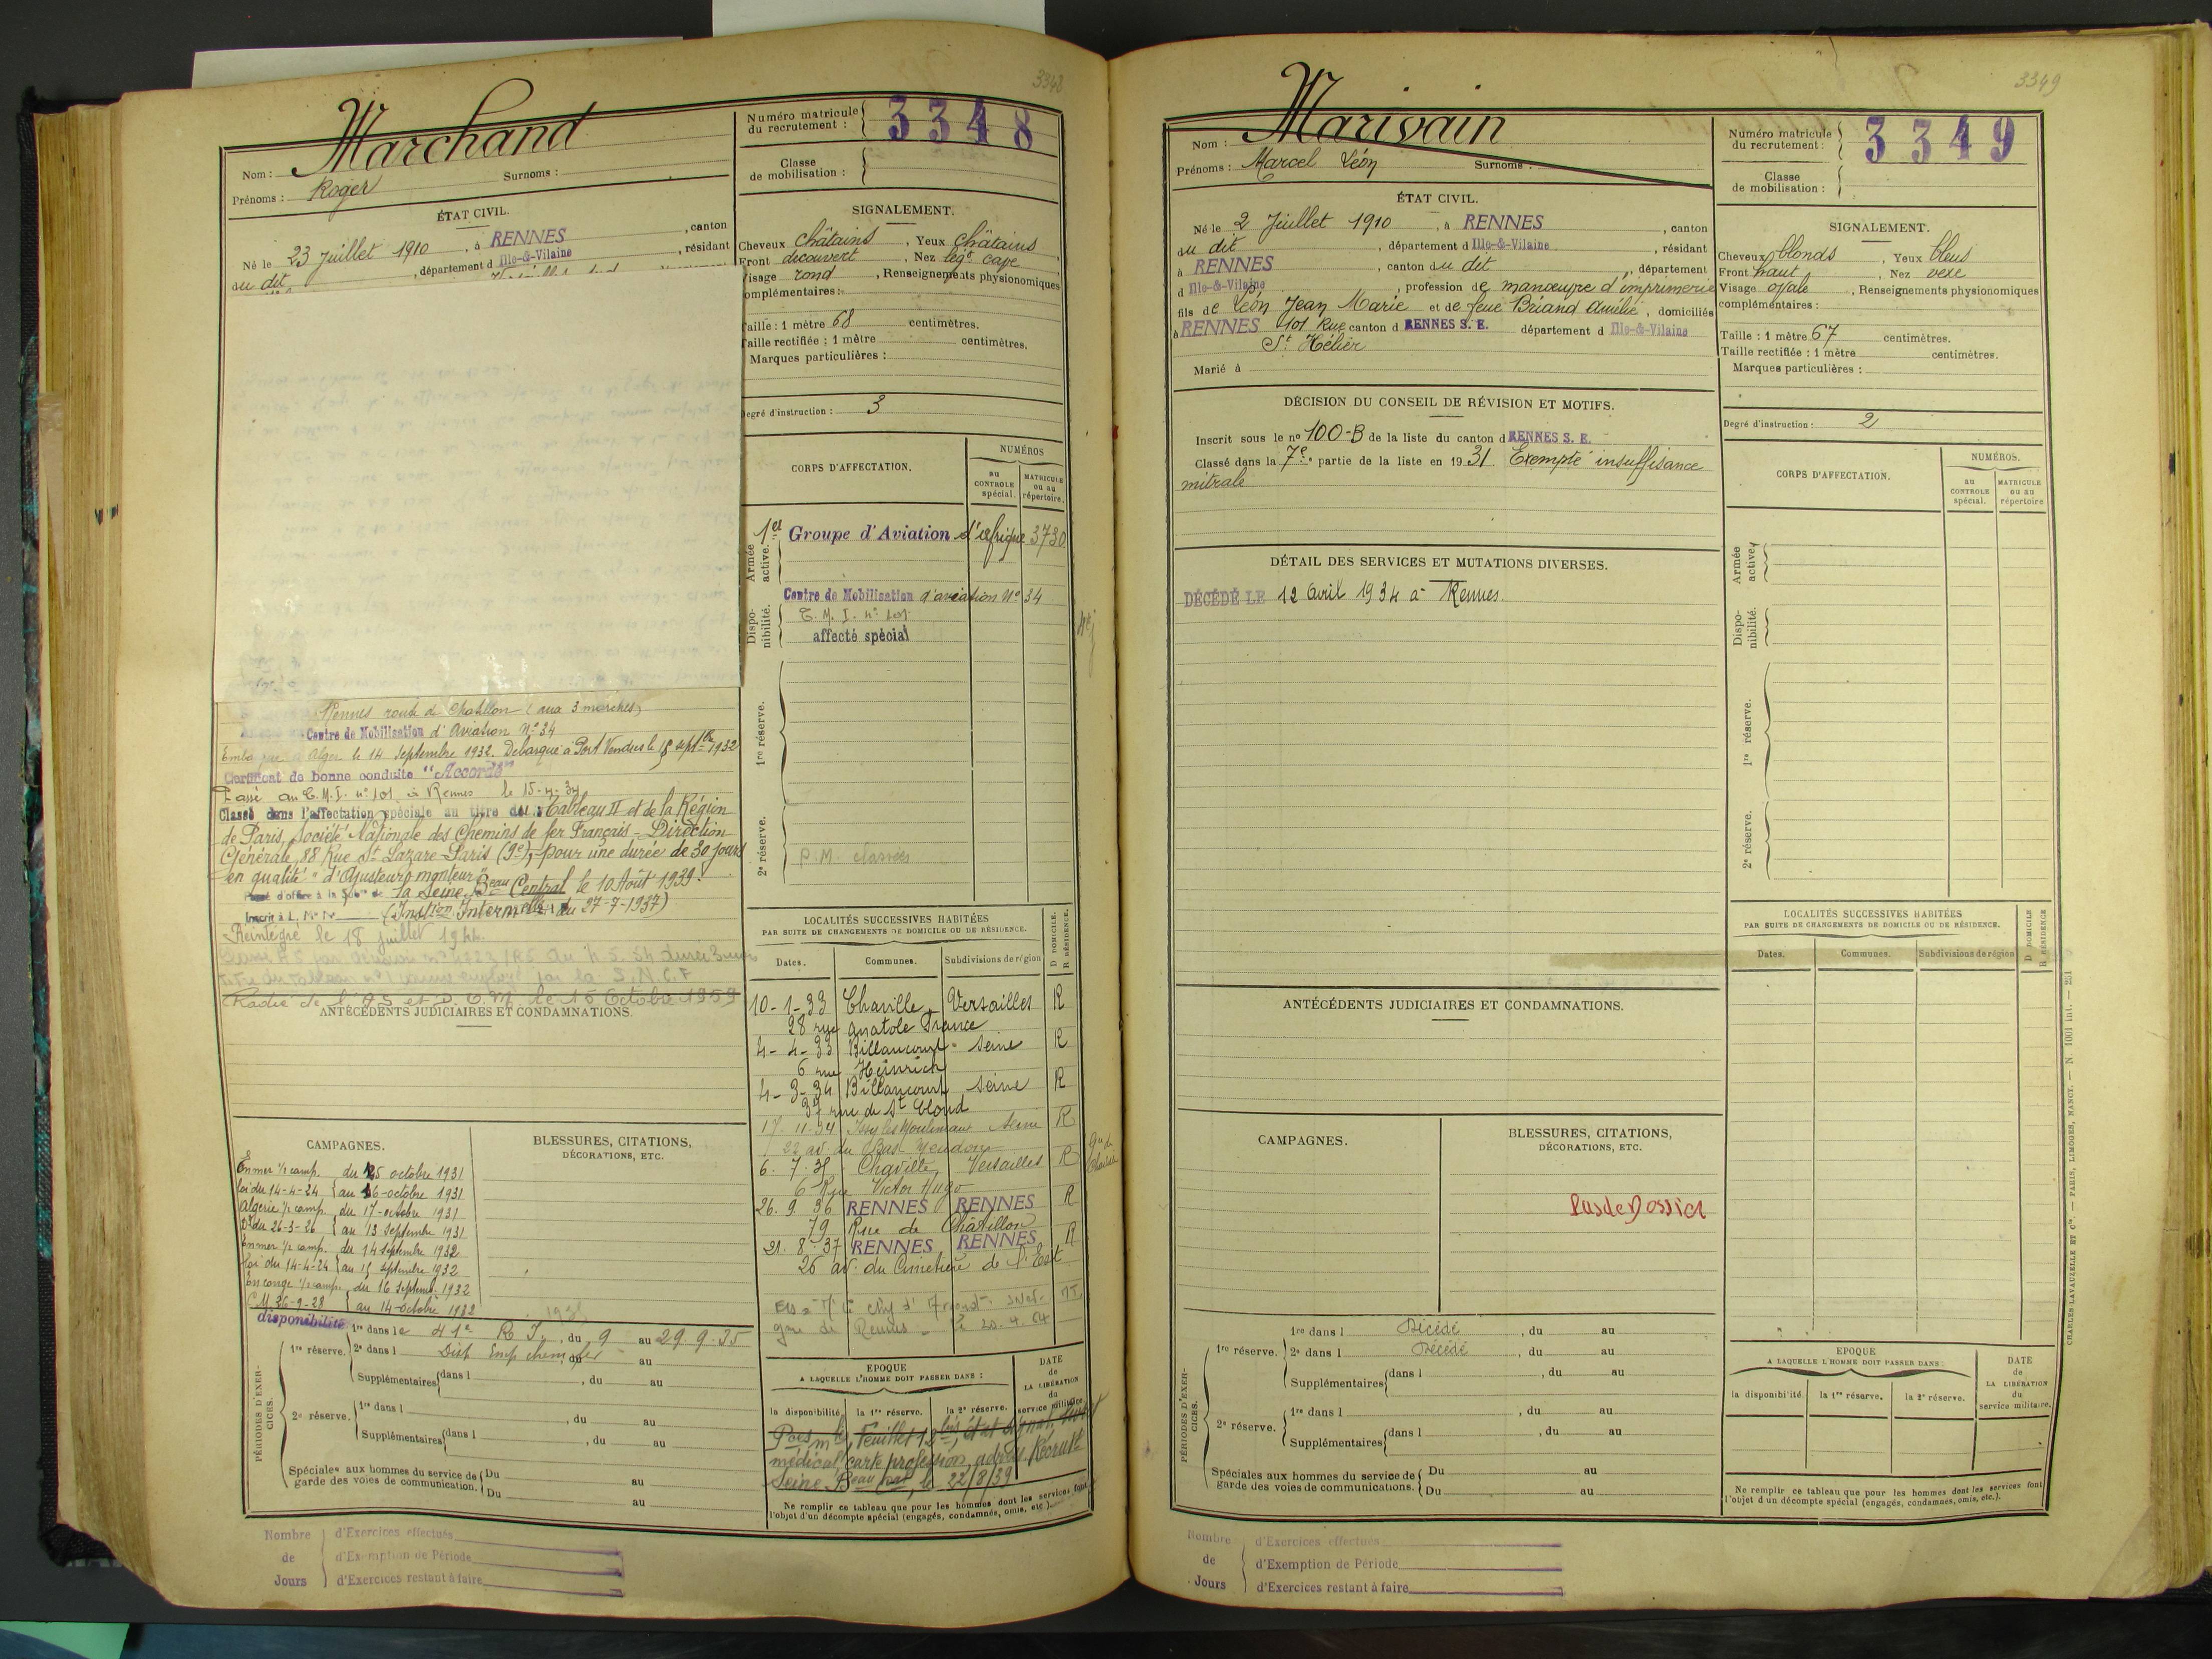 3348
Marchand
Nom :
Prénoms : Roger Surnoms :
Numéro matricule
du recrutement :
3348
Classe
de mobilisation :
ÉTAT CIVIL.
Né le 23 Juillet 1910, à RENNES, canton
du dit, département d Ille-&-Vilaine, résidant
SIGNALEMENT.
Cheveux châtains, Yeux châtains
Front découvert, Nez légt cave
Visage rond, Renseignements physionomiques
complémentaires :
Taille : 1 mètre 68 centimètres.
Taille rectifiée : 1 mètre centimètres.
Marques particulières :
Degré d'instruction : 3
CORPS D'AFFECTATION.
NUMÉROS
au
CONTROLE
spécial.
MATRICULE
ou au
répertoire.
Armée
active.
1er Groupe d'Aviation d'Afrique 3730
Dispo-
nibilité.
Centre de Mobilisation d'aviation No 34
C.M.I. no 101
affecté spécial
1re réserve.
2e réserve.
P.M. classées
Rennes route de Chatillon (aux 3 marches)
Centre de Mobilisation d'Aviation No 34
Embarqué à Alger le 14 Septembre 1932. Debarqué à Port Vendres le 15 septbre 1932
Certificat de bonne conduite "Accordé"
Passé au C.M.I. no 101 à Rennes le 15-4-34
Classé dans l'affectation spéciale au titre du Tableau II et de la Région
de Paris, Société Nationale des Chemins de fer Français - Direction
Générale, 88 Rue St Lazare Paris (9e), pour une durée de 30 jours
en qualité "d'Ajusteur monteur"
Passé d'office à la Subon de la Seine, Beau Central le 10 Août 1939.
Inscrit à L. M. No (Instion Intermelle du 27-7-1937)
Réintégré le 18 juillet 1944.
Radié de l'AS et D.C.M. le 15 Octobre 1959
ANTÉCÉDENTS JUDICIAIRES ET CONDAMNATIONS.
LOCALITÉS SUCCESSIVES HABITÉES
PAR SUITE DE CHANGEMENTS DE DOMICILE OU DE RÉSIDENCE.
D DOMICILE.
R RÉSIDENCE.
Dates. Communes. Subdivisions de région
10-1-33 Chaville Versailles R
28 rue Anatole France
4-4-33 Billancourt Seine R
6 rue Heinrich
4-3-34 Billancourt Seine R
37 rue de St Cloud
17-11-34 Issy les Moulineaux Seine R
22 av. du Bas Meudon
6.7.35 Chaville Versailles R
6 Rue Victor Hugo
26.9.36 RENNES RENNES R
79 Rue de Châtillon
21.8.37 RENNES RENNES R
26 av. du Cimetière de l'Est
gare de Rennes
CAMPAGNES.
En mer 1/2 camp. du 15 octobre 1931
loi du 14-4-24 au 16 octobre 1931
Algérie 1/2 camp. du 17 octobre 1931
Dt du 26-3-26 au 13 Septembre 1931
En mer 1/2 camp. du 14 Septembre 1932
Loi du 14-4-24 au 15 septembre 1932
En congé 1/2 camp. du 16 Septemb. 1932
C.M. 26-9-28 au 14 octobre 1932
BLESSURES, CITATIONS,
DÉCORATIONS, ETC.
disponibilité
PÉRIODES D'EXER-
CICES.
1re réserve.
1re dans le 41e R.I., du 9 au 29.9.35
2e dans l Disp Emp chem fer, du au
Supplémentaires dans l , du au
2e réserve.
1re dans l , du au
Supplémentaires dans l , du au
Spéciales aux hommes du service de
garde des voies de communication.
Du au
Du au
EPOQUE
A LAQUELLE L'HOMME DOIT PASSER DANS :
DATE
de
LA LIBÉRATION
du
service militaire
la disponibilité. la 1re réserve. la 2e réserve.
médical, carte profession, Recrutt
Seine, Beau Cal, le 22/8/39
Ne remplir ce tableau que pour les hommes dont les services font
l'objet d'un décompte spécial (engagés, condamnés, omis, etc.).
Nombre
de
Jours
d'Exercices effectués
d'Exemption de Période
d'Exercices restant à faire
3349
Marivain
Nom :
Prénoms : Marcel Léon Surnoms :
Numéro matricule
du recrutement :
3349
Classe
de mobilisation :
ÉTAT CIVIL.
Né le 2 Juillet 1910, à RENNES, canton
du dit, département d Ille-&-Vilaine, résidant
à RENNES, canton du dit, département
d Ille-&-Vilaine, profession de manœuvre d'imprimerie
fils de Léon Jean Marie et de feue Briand Amélie, domiciliés
à RENNES 101 Rue canton d RENNES S. E. département d Ille-&-Vilaine
St Hélier
Marié à
SIGNALEMENT.
Cheveux blonds, Yeux bleus
Front haut, Nez vexe
Visage ovale, Renseignements physionomiques
complémentaires :
Taille : 1 mètre 67 centimètres.
Taille rectifiée : 1 mètre centimètres.
Marques particulières :
Degré d'instruction : 2
DÉCISION DU CONSEIL DE RÉVISION ET MOTIFS.
Inscrit sous le no 100-B de la liste du canton d RENNES S. E.
Classé dans la 7e partie de la liste en 1931. Exempté insuffisance
mitrale
DÉTAIL DES SERVICES ET MUTATIONS DIVERSES.
DÉCÉDÉ LE 12 Avril 1934 à Rennes.
CORPS D'AFFECTATION.
NUMÉROS.
au
CONTROLE
spécial.
MATRICULE
ou au
répertoire
Armée
active.
Dispo-
nibilité.
1re réserve.
2e réserve.
ANTÉCÉDENTS JUDICIAIRES ET CONDAMNATIONS.
LOCALITÉS SUCCESSIVES HABITÉES
PAR SUITE DE CHANGEMENTS DE DOMICILE OU DE RÉSIDENCE.
D DOMICILE
R RÉSIDENCE
Dates. Communes. Subdivisions de région
CAMPAGNES.
BLESSURES, CITATIONS,
DÉCORATIONS, ETC.
Pas de Dossier
PÉRIODES D'EXER-
CICES.
1re réserve.
1re dans l Décédé, du au
2e dans l Décédé, du au
Supplémentaires dans l , du au
2e réserve.
1re dans l , du au
Supplémentaires dans l , du au
Spéciales aux hommes du service de
garde des voies de communications.
Du au
Du au
EPOQUE
A LAQUELLE L'HOMME DOIT PASSER DANS
DATE
de
LA LIBÉRATION
du
service militaire.
la disponibilité. la 1re réserve. la 2e réserve.
Ne remplir ce tableau que pour les hommes dont les services font
l'objet d'un décompte spécial (engagés, condamnés, omis, etc.).
CHARLES-LAVAUZELLE ET Cie. — PARIS, LIMOGES, NANCY. — N. 1001 int. —
Nombre
de
Jours
d'Exercices effectués
d'Exemption de Période
d'Exercices restant à faire